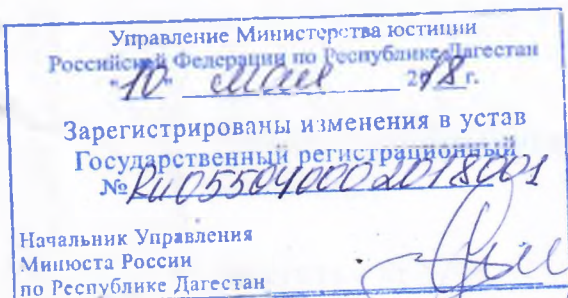 Управление Министерства юстиции
Российской Федерации по Республике Дагестан
"10" мая 2018 г.
Зарегистрированы изменения в устав
Государственный регистрационный
№ Ru055040002018001
Начальник Управления
Минюста России
по Республике Дагестан